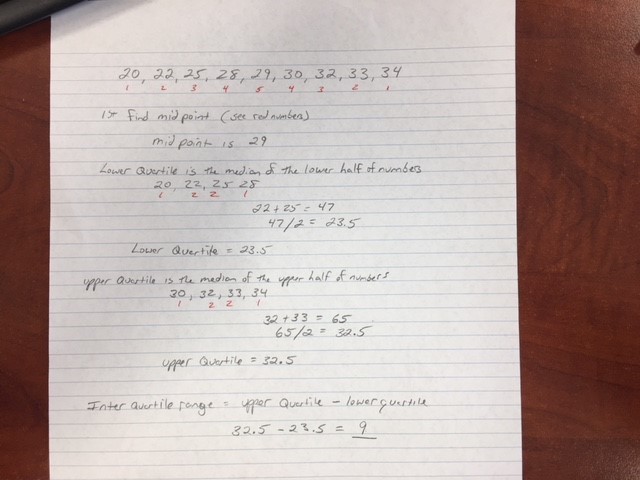 20, 22, 25, 28, 29, 30, 32, 33, 34
1 2 3 4 5 4 3 2 1
1st find midpoint (see red numbers)
midpoint is 29
Lower Quartile is the median of the lower half of numbers
20, 22, 25 28
1 2 2 1
22 + 25 = 47
47/2 = 23.5
Lower Quartile = 23.5
upper Quartile is the median of the upper half of numbers
30, 32, 33, 34
1 2 2 1
32 + 33 = 65
65/2 = 32.5
upper Quartile = 32.5
Inter quartile range = upper Quartile - lower quartile
32.5 - 23.5 = 9